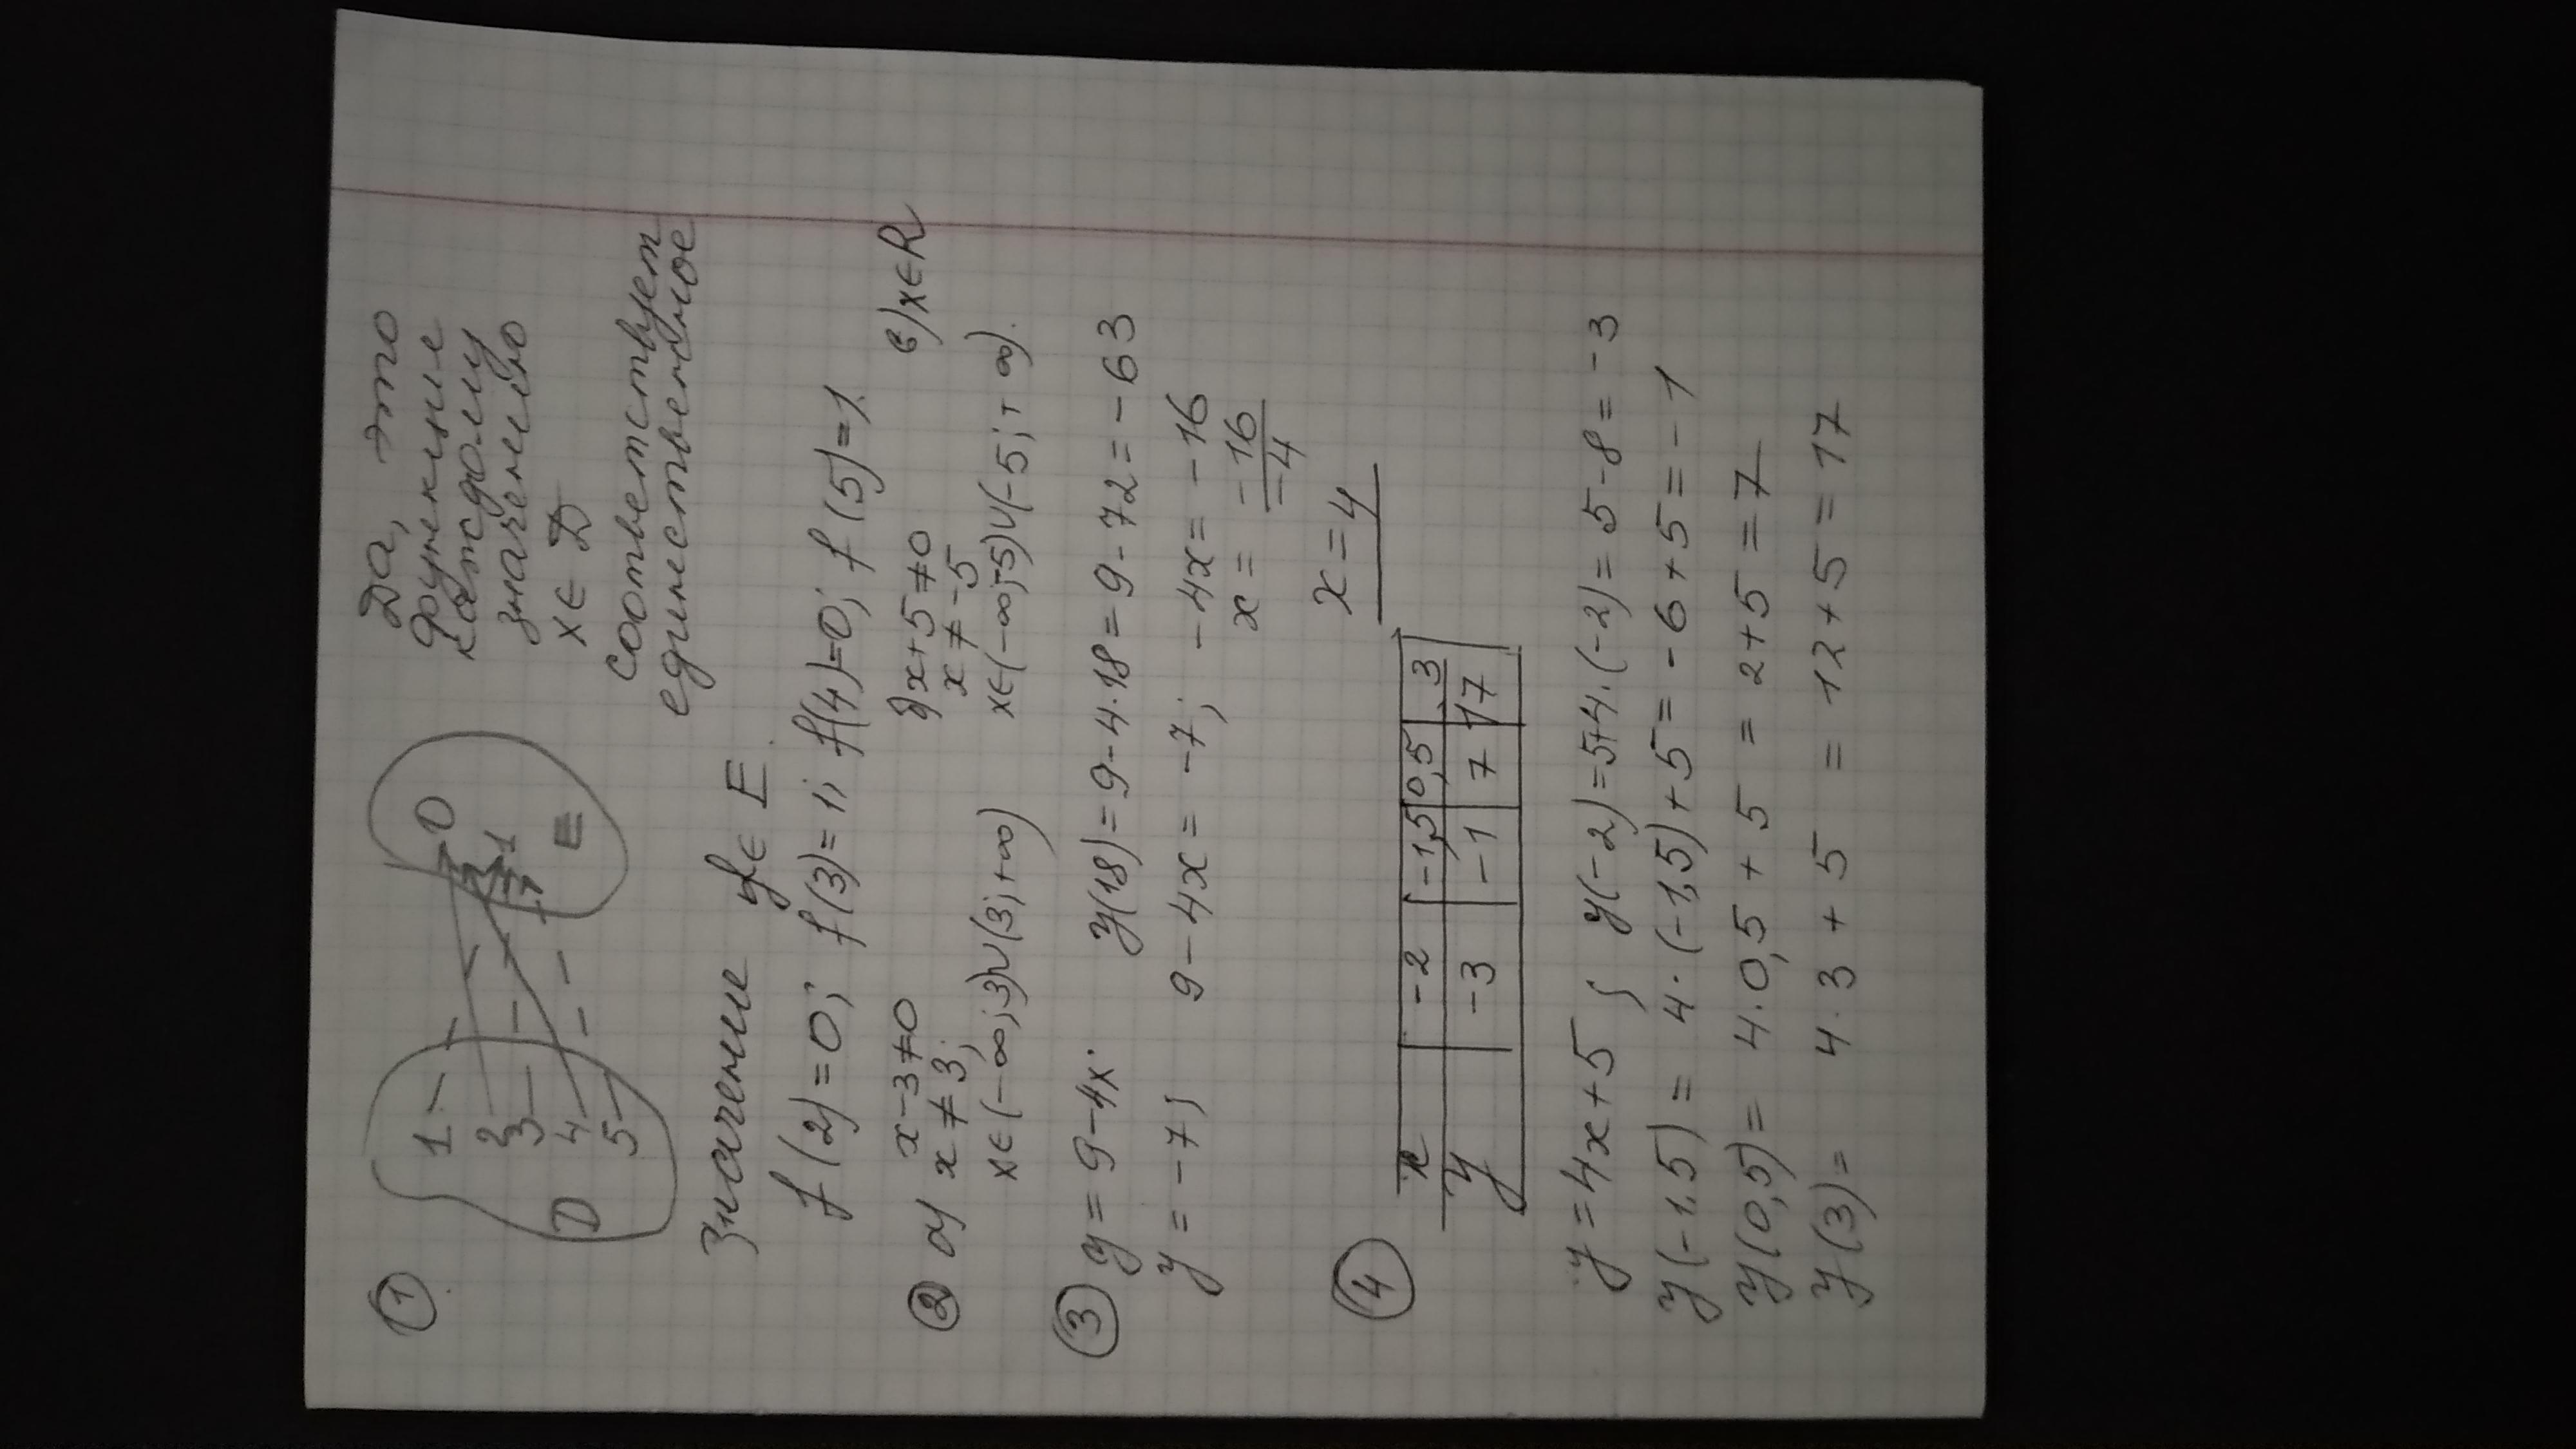 ① Да, это
функция
каждому
значению
x ∈ D
соответствует
единственное
1 2 3 4 5 D
0 1 E
Значение y ∈ E.
f(2)=0; f(3)=1; f(4)=0; f(5)=1.
② а) x-3≠0
x≠3;
x∈(-∞;3)∪(3;+∞)
б) x+5≠0
x≠-5
x∈(-∞;-5)∪(-5;+∞).
в) x∈R
③ y=9-4x. y(18)=9-4·18=9-72=-63
y=-7; 9-4x=-7; -4x=-16
x= -16/-4
x=4
④ x -2 -1,5 0,5 3
y -3 -1 7 17
y=4x+5; y(-2)=5+4·(-2)=5-8=-3
y(-1,5)= 4·(-1,5)+5=-6+5=-1
y(0,5)= 4·0,5+5 = 2+5=7
y(3)= 4·3+5 = 12+5=17